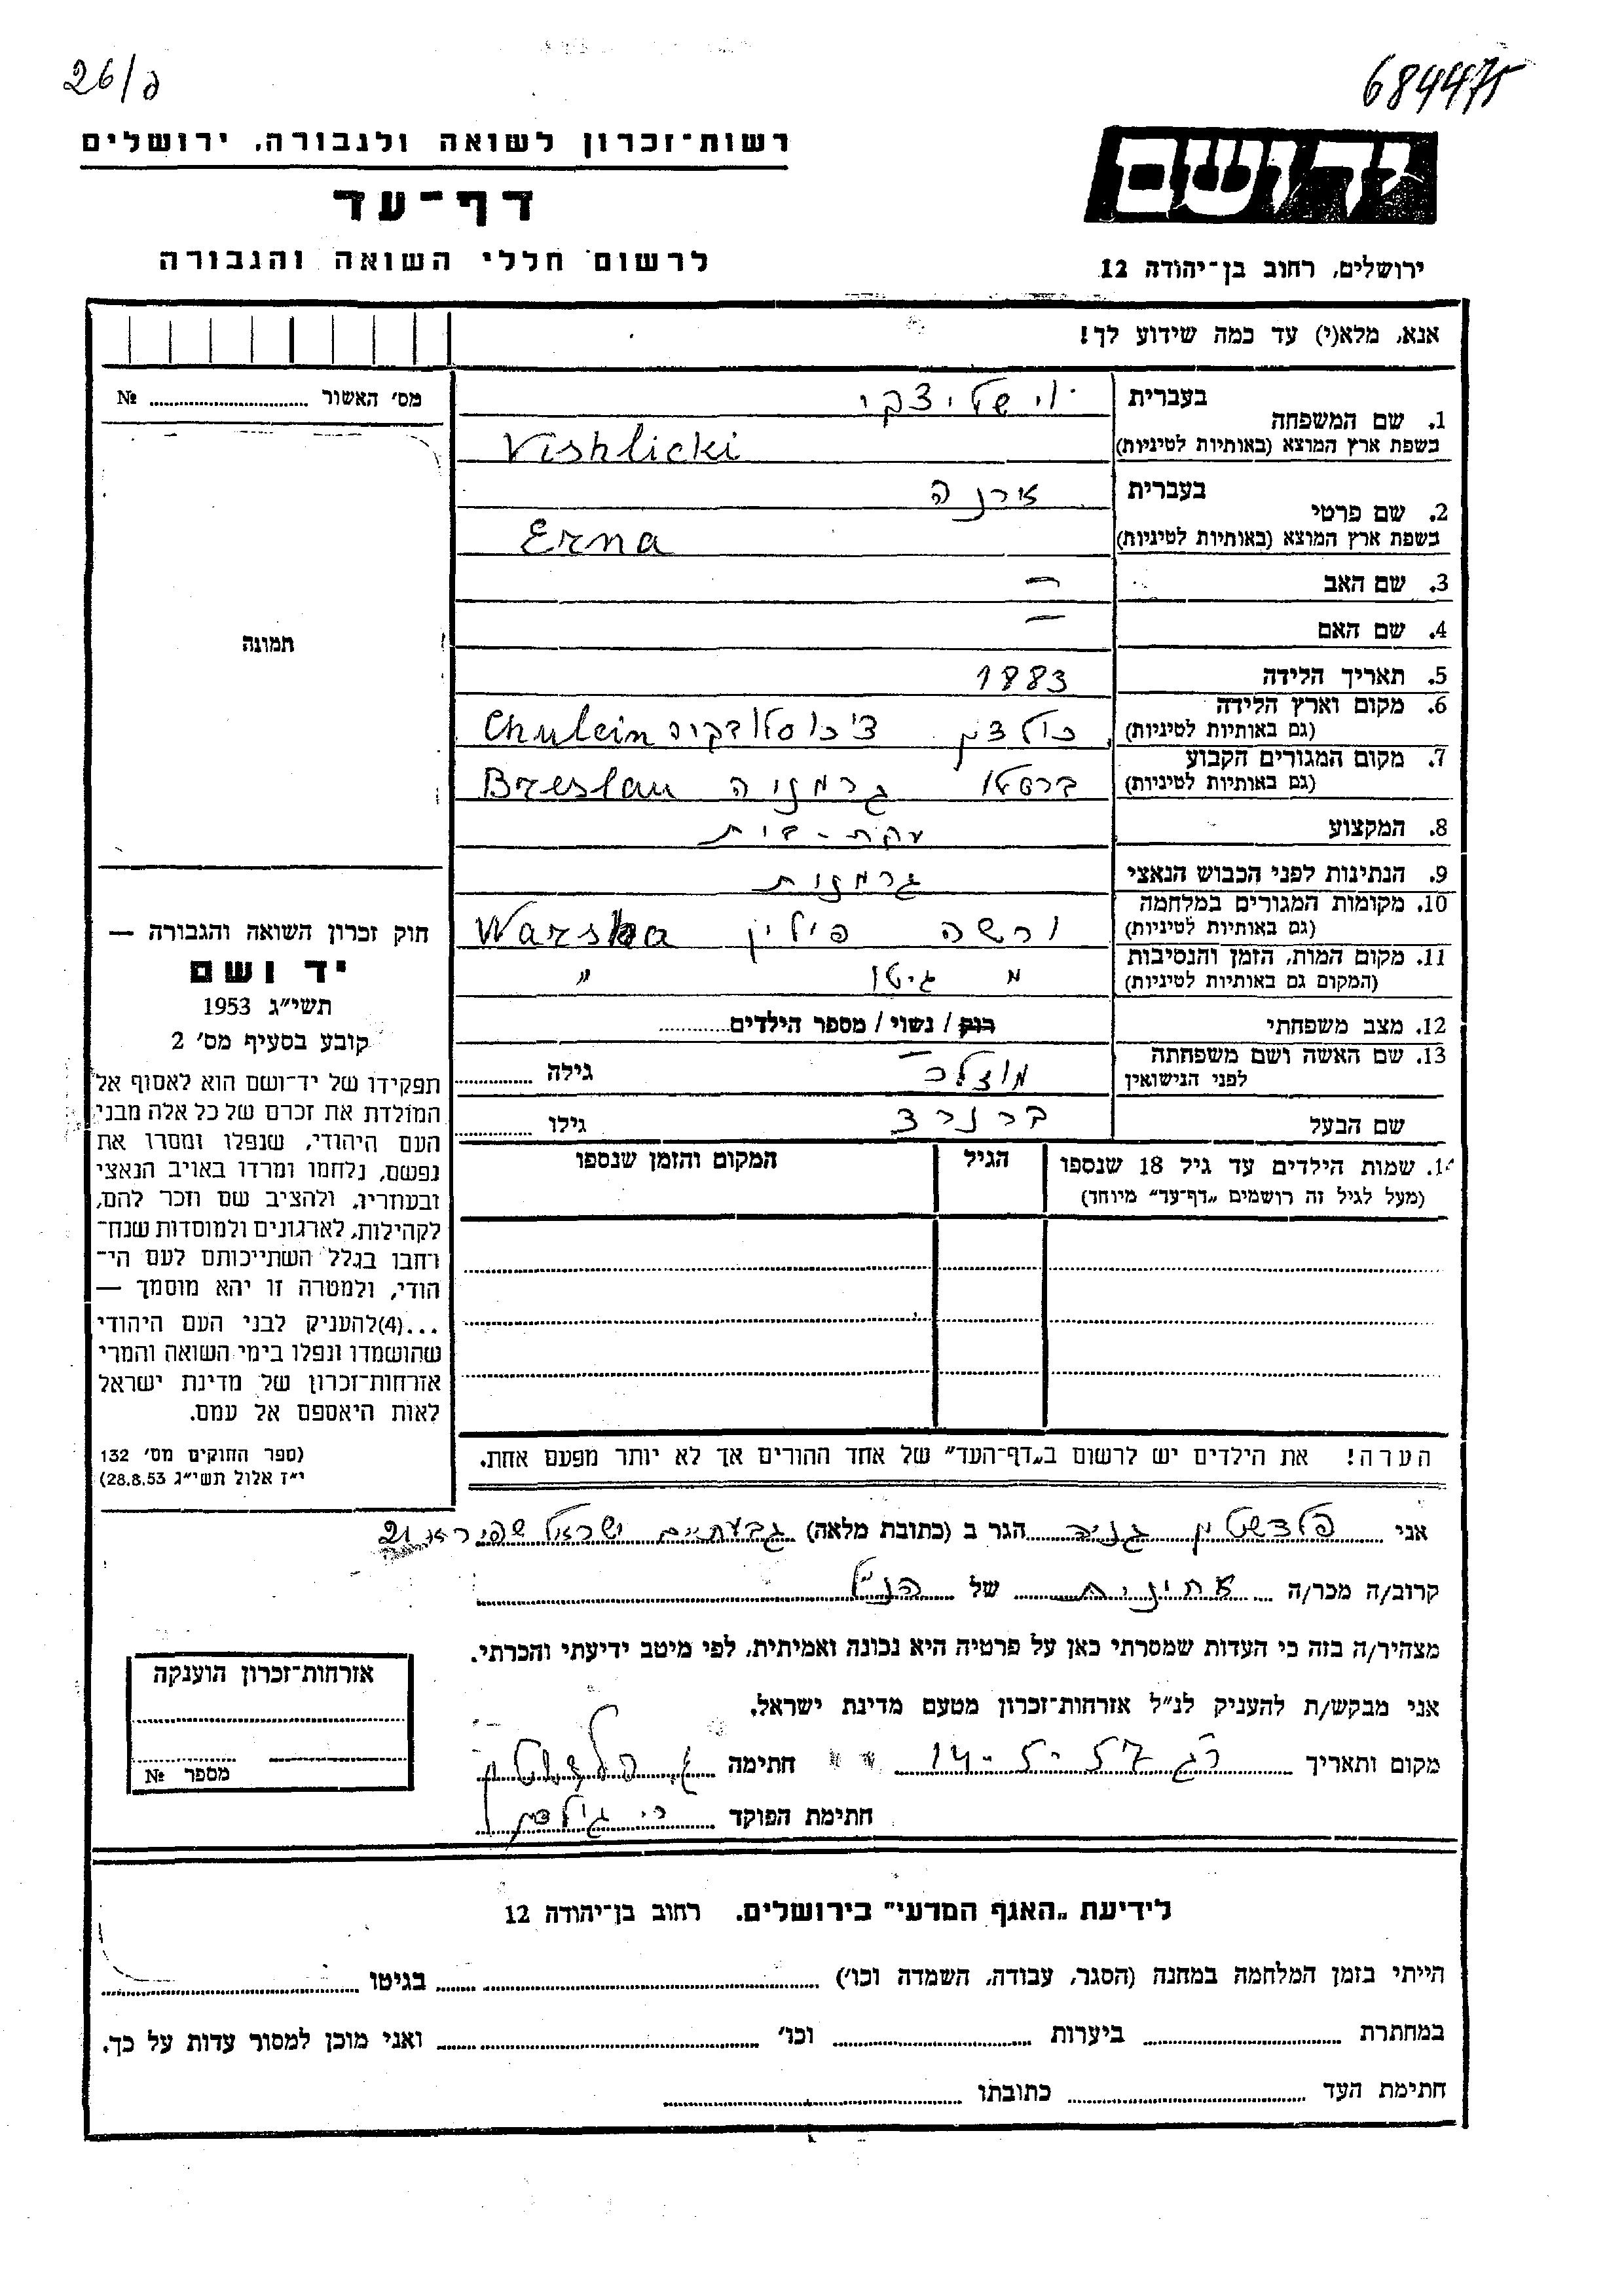 26/ג
684475
רשות־זכרון לשואה ולגבורה, ירושלים
דף־עד
לרשום חללי השואה והגבורה
יד ושם
ירושלים, רחוב בן־יהודה 12
אנא, מלא(י) עד כמה שידוע לך!
מס׳ האשור № ....................
תמונה
חוק זכרון השואה והגבורה —
יד ושם
תשי״ג 1953
קובע בסעיף מס׳ 2
תפקידו של יד־ושם הוא לאסוף אל
המולדת את זכרם של כל אלה מבני
העם היהודי, שנפלו ומסרו את
נפשם, נלחמו ומרדו באויב הנאצי
ובעוזריו, ולהציב שם וזכר להם,
לקהילות, לארגונים ולמוסדות שנח־
רחבו בגלל השתייכותם לעם הי־
הודי, ולמטרה זו יהא מוסמך —
...(4)להעניק לבני העם היהודי
שהושמדו ונפלו בימי השואה והמרי
אזרחות־זכרון של מדינת ישראל
לאות היאספם אל עמם.
(ספר החוקים מס׳ 132
י״ז אלול תשי״ג 28.8.53)
בעברית וישליצקי
1. שם המשפחה
בשפת ארץ המוצא (באותיות לטיניות) Vishlicki
בעברית ארנה
2. שם פרטי
בשפת ארץ המוצא (באותיות לטיניות) Erna
3. שם האב —
4. שם האם —
5. תאריך הלידה 1883
6. מקום וארץ הלידה
(גם באותיות לטיניות) צ׳כוסלובקיה Chulein
7. מקום המגורים הקבוע
(גם באותיות לטיניות) ברסלו גרמניה Breslau
8. המקצוע עקרת-בית
9. הנתינות לפני הכבוש הנאצי גרמנית
10. מקומות המגורים במלחמה
(גם באותיות לטיניות) ורשה פולין Warsha
11. מקום המות, הזמן והנסיבות
(המקום גם באותיות לטיניות) גיטו ״
12. מצב משפחתי רוק / נשוי / מספר הילדים............
13. שם האשה ושם משפחתה
לפני הנישואין גילה ............
שם הבעל ברנרד גילו ............
14. שמות הילדים עד גיל 18 שנספו
(מעל לגיל זה רושמים „דף־עד״ מיוחד)
הגיל
המקום והזמן שנספו
הערה! את הילדים יש לרשום ב„דף־העד״ של אחד ההורים אך לא יותר מפעם אחת.
אני פלדשטין הגר ב (כתובת מלאה) גבעתיים ישראל שפירא 21
קרוב/ה מכר/ה אחינית של הנ״ל
מצהיר/ה בזה כי העדות שמסרתי כאן על פרטיה היא נכונה ואמיתית, לפי מיטב ידיעתי והכרתי.
אני מבקש/ת להעניק לנ״ל אזרחות־זכרון מטעם מדינת ישראל.
מקום ותאריך ר״ג 14-5-57 חתימה
חתימת הפוקד
אזרחות־זכרון הוענקה
מספר №
לידיעת „האגף המדעי״ בירושלים. רחוב בן־יהודה 12
הייתי בזמן המלחמה במחנה (הסגר, עבודה, השמדה וכו׳) .................... בגיטו ....................
במחתרת .................... ביערות .................... וכו׳ .................... ואני מוכן למסור עדות על כך.
חתימת העד .................... כתובתו ....................